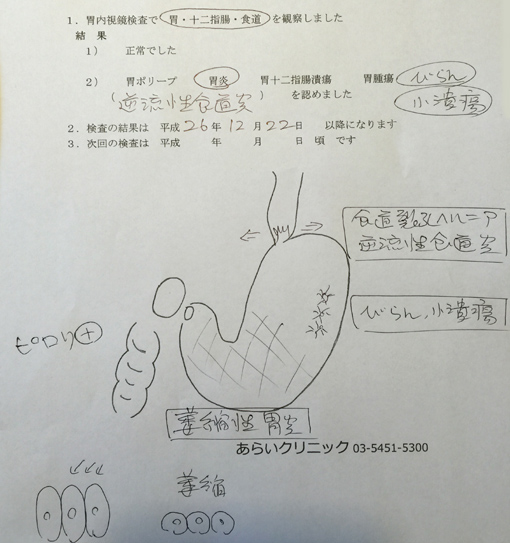 1．胃内視鏡検査で 胃・十二指腸・食道 を観察しました
結 果
1） 正常でした
2） 胃ポリープ 胃炎 胃十二指腸潰瘍 胃腫瘍 びらん
（逆流性食道炎） を認めました 小潰瘍
2．検査の結果は 平成 26年 12月 22日 以降になります
3．次回の検査は 平成 年 月 日 頃 です
食道裂孔ヘルニア
逆流性食道炎
びらん，小潰瘍
ピロリ＋
萎縮性胃炎
あらいクリニック 03-5451-5300
萎縮